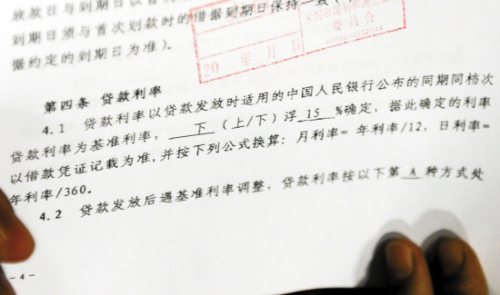 放款日与到期日以首
到期日须与首次划款时的借据到期日保持一致(
据约定的到期日为准)。
委员会
20 年 月 日
第四条 贷款利率
4.1 贷款利率以贷款发放时适用的中国人民银行公布的同期同档次
贷款利率为基准利率, 下 (上/下)浮 15 %确定,据此确定的利率
以借款凭证记载为准,并按下列公式换算:月利率=年利率/12,日利率=
年利率/360。
4.2 贷款发放后遇基准利率调整,贷款利率按以下第 A 种方式处
-4-